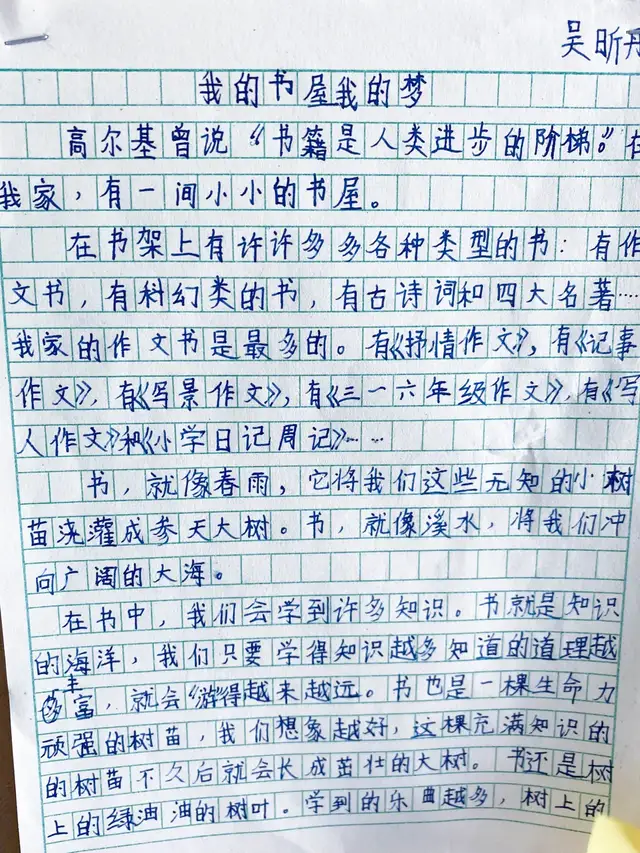 吴昕丹
我的书屋我的梦
高尔基曾说“书籍是人类进步的阶梯。”在
我家，有一间小小的书屋。
在书架上有许许多多各种类型的书：有作
文书，有科幻类的书，有古诗词和四大名著……
我家的作文书是最多的。有《抒情作文》，有《记事
作文》，有《写景作文》，有《三一六年级作文》，有《写
人作文》和《小学日记周记》……
书，就像春雨，它将我们这些无知的小树
苗浇灌成参天大树。书，就像溪水，将我们冲
向广阔的大海。
在书中，我们会学到许多知识。书就是知识
的海洋，我们只要学得知识越多知道的道理越
丰富，就会“游”得越来越远。书也是一棵生命力
顽强的树苗，我们想象越好，这棵充满知识的
的树苗不久后就会长成茁壮的大树。书还是树
上的绿油油的树叶。学到的乐曲越多，树上的